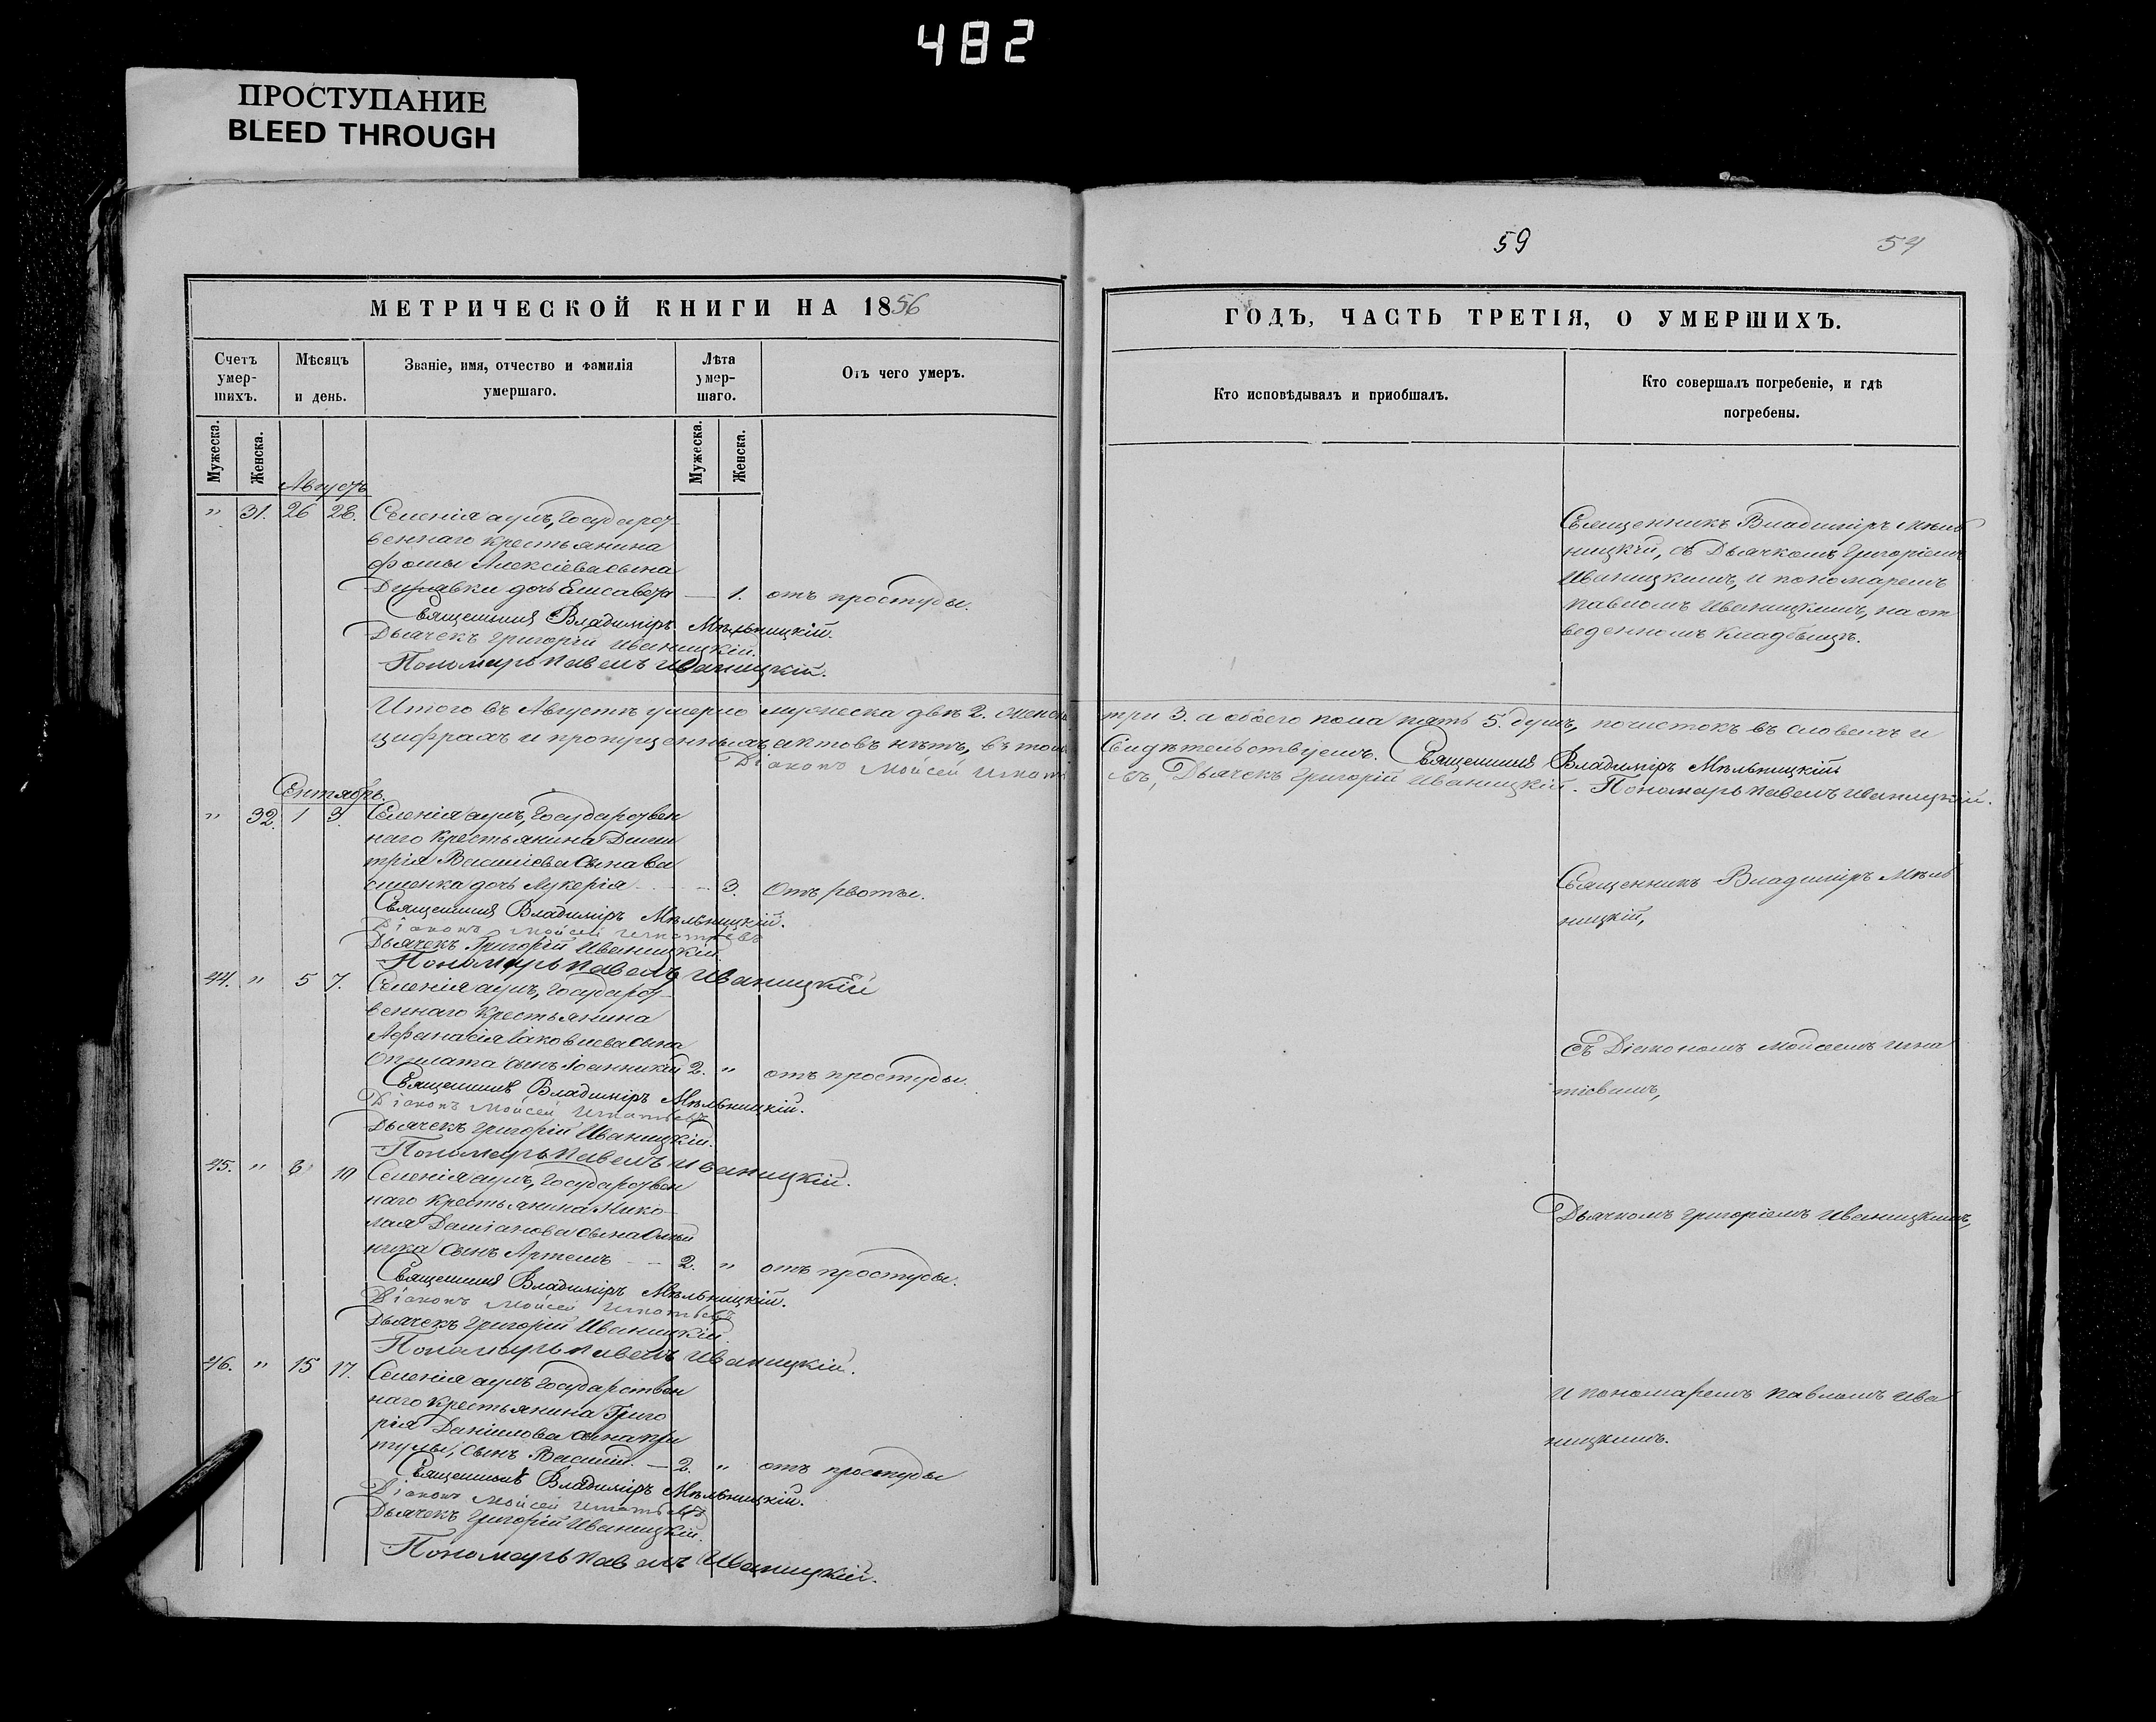 482
ПРОСТУПАНИЕ
BLEED THROUGH
59
54
МЕТРИЧЕСКОЙ КНИГИ НА 1856
ГОДЪ, ЧАСТЬ ТРЕТІЯ, О УМЕРШИХЪ.
Счетъ умер-шихъ.
Мѣсяцъ и день.
Званіе, имя, отчество и фамилія умершаго.
Лѣта умер-шаго.
Отъ чего умеръ.
Кто исповѣдывалъ и приобшалъ.
Кто совершалъ погребеніе, и гдѣ погребены.
Мужеска.
Женска.
Мужеска.
Женска.
Августъ
" 31. 26 28. Селенія аулъ, Государст-
веннаго крестьянина
Фомы Алексіева сына
дочь Елисавета — 1. отъ простуды.
Священникъ Владиміръ Мѣльницкій.
Дьячекъ Григорій Иваницкій.
Пономарь Павелъ Иваницкій.
Священникъ Владиміръ Мѣль
ницкій, съ Дьячкомъ Григоріемъ
Иваницкимъ, и пономаремъ
Павломъ Иваницкимъ, на от
веденномъ кладбищѣ.
Итого въ Августѣ умерло мужеска двѣ 2. женска три 3. а обоего пола пять 5. душъ, почистокъ въ словахъ и
цифрахъ и пропущенныхъ актовъ нѣтъ, въ томъ Свидѣтельствуемъ. Священникъ Владиміръ Мѣльницкій
Діаконъ Мойсей Дьячекъ Григорій Иваницкій. Пономарь Павелъ Иваницкій.
Сентябрь.
" 32. 1 3. Селенія аулъ, Государствен
наго крестьянина Дими
трія Василіева сына Ва
силенка дочь Лукерія — 3. Отъ рвоты.
Священникъ Владиміръ Мѣльницкій.
Діаконъ Мойсей Игнатьевъ
Дьячекъ Григорій Иваницкій
Пономарь Павелъ Иваницкій
Священникъ Владиміръ Мѣль
ницкій,
44. " 5 7. Селенія аулъ, Государст-
веннаго крестьянина
Афанасія Іаковлева сына
сынъ Іоанникій 2. " отъ простуды.
Священникъ Владиміръ Мѣльницкій.
Діаконъ Мойсей Игнатьевъ
Дьячекъ Григорій Иваницкій.
Пономарь Павелъ Иваницкій.
съ Діакономъ Мойсеемъ Игна
тіевымъ,
45. " 8 10 Селенія аулъ, Государствен
наго крестьянина Нико-
лая Даміанова сына
сынъ Артемъ — 2. " отъ простуды.
Священникъ Владиміръ Мѣльницкій.
Діаконъ Мойсей Игнатьевъ
Дьячекъ Григорій Иваницкій
Пономарь Павелъ Иваницкій.
Дьячкомъ Григоріемъ Иваницкимъ,
46. " 15 17. Селенія аулъ Государствен
наго крестьянина Григо
рія Даніилова сына При
тулы, сынъ Василій. — 2. " отъ простуды
Священникъ Владиміръ Мѣльницкій.
Діаконъ Мойсей Игнатьевъ
Дьячекъ Григорій Иваницкій.
Пономарь Павелъ Иваницкій.
и пономаремъ Павломъ Ива
ницкимъ.